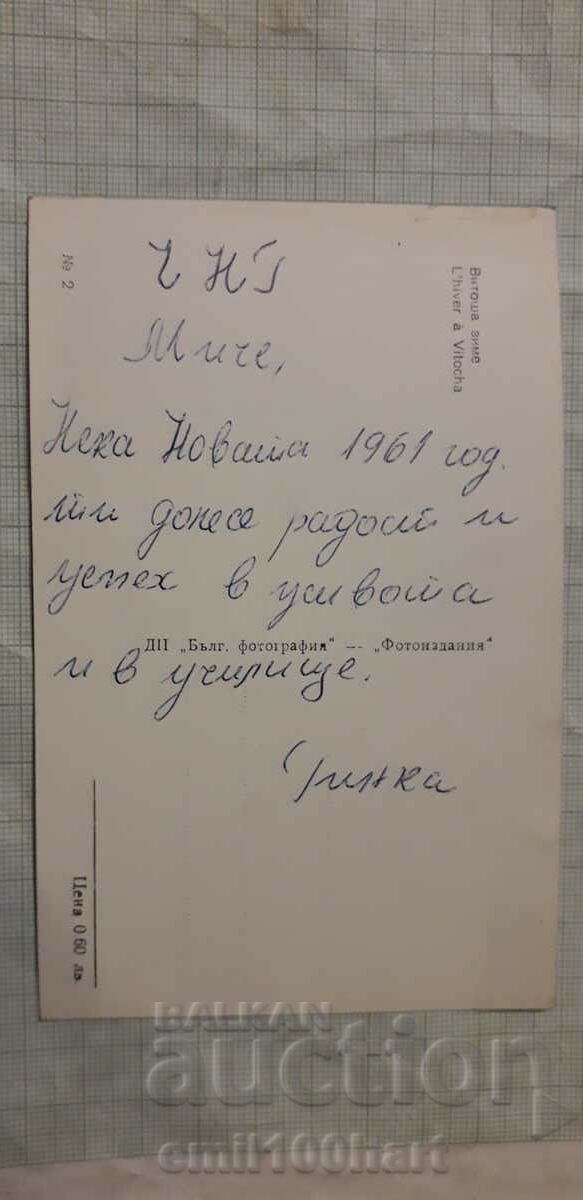 ЧНГ
Миче,
Нека Новата 1961 год.
ти донесе радост и
успех в живота
и в училище.
Гинка
№ 2
Витоша зиме
L'hiver à Vitocha
ДП „Бълг. фотография“ — „Фотоиздания“
Цена 0.60 лв.
BALKAN
auction
emil100hart